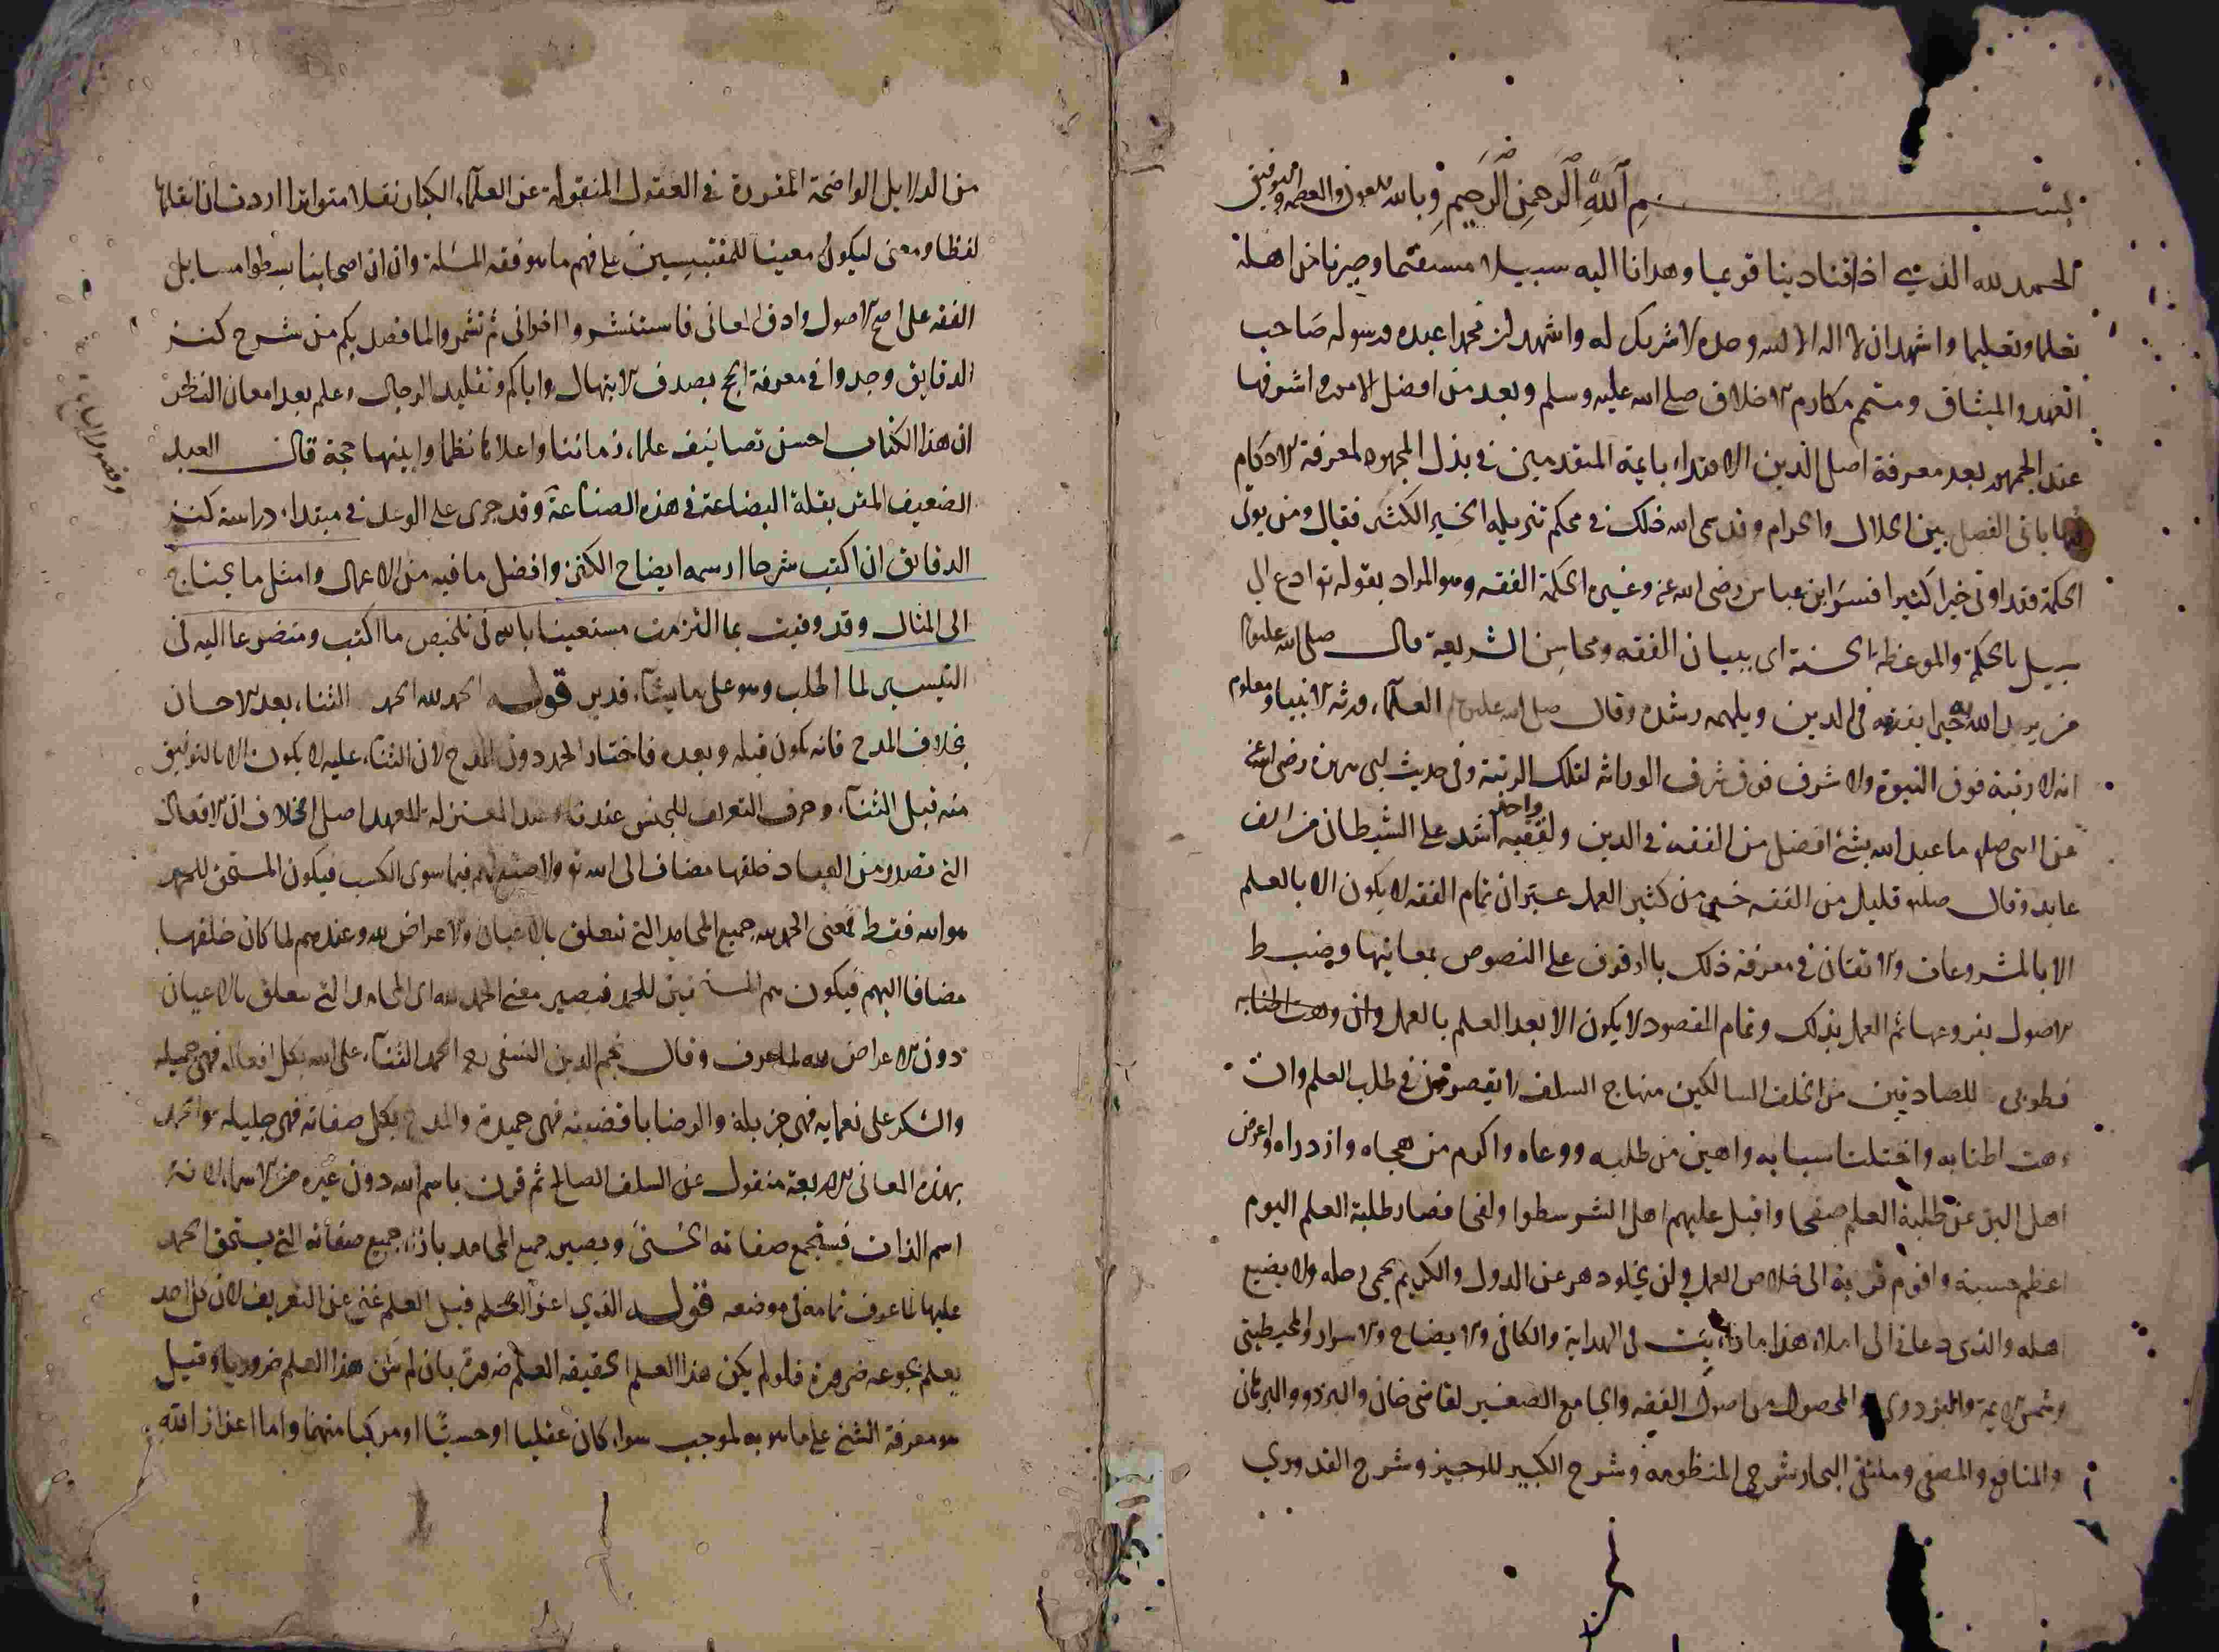 بسم الله الرحمن الرحيم وبالله العون والعصمة والتوفيق
الحمد لله الذي اذاقنا دينا قويما وهدانا اليه سبيلا مستقيما وصيرنا من اهله
تعلما وتعليما واشهد ان لا اله الا الله وحده لا شريك له واشهد ان محمدا عبده ورسوله صاحب
العهد والميثاق ومتمم مكارم الاخلاق صلى الله عليه وسلم وبعد من افضل الامور واشرفها
عند الجمهور بعد معرفة اصل الدين الاقتداء بايمة المتقدمين في بذل المجهود لمعرفة الاحكام
فبها ياتي الفصل بين الحلال والحرام وقد سمى الله ذلك في محكم تنزيله الخير الكثير فقال ومن يوتى
الحكمة فقد اوتى خيرا كثيرا فسر ابن عباس رضى الله عنه وغيره الحكمة الفقه وهو المراد بقوله تع ادع الى
سبيل بالحكمة والموعظة الحسنة اى ببيان الفقه ومحاسن الشريعة قال صلى الله عليه
من يريد الله به خيرا يفقهه في الدين ويلهمه رشده وقال صلى الله عليه العلماء ورثة الانبياء ومعلوم
انه لا رتبة فوق النبوة ولا شرف فوق شرف الوراثة لتلك الرتبة وفي حديث ابى هريرة رضى الله عنه
عن النبى صلعم ما عبد الله بشئ افضل من الفقه في الدين ولفقيه واحد اشد على الشيطان من الف
عابد وقال صلعم قليل من الفقه خير من كثير العمل غير ان تمام الفقه لا يكون الا بالعلم
الا بالمشروعات والاتقان في معرفة ذلك بالوقوف على النصوص بمعانيها وضبط
الاصول بفروعها ثم العمل بذلك وتمام المقصود لا يكون الا بعد العلم بالعمل وان وهت اطنابه
فطوبى للصادقين من الخلف السالكين منهاج السلف في طلب العلم وان
وهت اطنابه واختلت اسبابه واهين من طلبه ووعاه واكرم من هجاه وازدراه واعرض
اهل البر عن طلبة العلم صفحا واقبل عليهم اهل الشر سطوا ولفحا فصار طلبة العلم اليوم
اعظم حسبة واقوم قربة الى خلاص العمل ولن يخلو دهر عن الدول والكريم يحمى رحله ولا يضيع
اهله والذى دعانى الى املاء هذا ما رايت فى الهداية والكافى والايضاح والاسرار والمحيطين
وشمس الايمة والبزدوى والمحصول من اصول الفقه والجامع الصغير لقاضى خان والبزدوى والبرهان
والمنافع والمصفى وملتقى البحار شرحى المنظومة وشرح الكبير للوجيز وشرح القدورى
من الدلايل الواضحة المقررة في العقول المنقولة عن العلماء الكبار نقلا متواترا اردت ان انقلها
لفظا ومعنى ليكون معينا للمقتبسين على فهم ما هو فقه المسئلة وان اصحابنا بسطوا مسايل
الفقه على اصح الاصول وادق المعانى فاستنشروا اخوانى ثم تشمروا لما فصل لكم من شرح كنز
الدقايق وجدوا في معرفة الحج بصدق الابتهال واياكم وتقليد الرجال وعلم بعد امعان النظر
ان هذا الكتاب احسن تصانيف علماء زماننا واعلاها نظما وابينها حجة قال العبد
الضعيف المقر بقلة البضاعة في هذه الصناعة وقد جرى على الوعد في مبتداء دراسة كنز
وقصور الباع
الدقايق ان اكتب شرحا ارسمه ايضاح الكنز وافضل ما فيه من الاعمال وامثل ما يحتاج
الى المثال وقد وفيت بما التزمت مستعينا بالله فى تلخيص ما اكتب ومتضرعا اليه فى
التيسير لما اطلب وهو على ما يشاء قدير قوله الحمد لله الحمد الثناء بعد الاحسان
بخلاف المدح فانه يكون قبله وبعده فاختار الحمد دون المدح لان الثناء عليه لا يكون الا بالتوفيق
منه قبل الثناء وحرف التعريف للجنس عندنا وعند المعتزلة للعهد اصل الخلاف ان الافعال
التى تصدر من العباد خلقها مضاف الى الله تع ولا صنع لهم فيما سوى الكسب فيكون المستحق للحمد
هو الله فقط فمعنى الحمد لله جميع المحامد التى تتعلق بالاعيان والاعراض لله وعندهم لما كان خلقها
مضافا اليهم فيكون هم المستحقين للحمد فيصير معنى الحمد لله اى المحامد التى تتعلق بالاعيان
دون الاعراض لله لما عرف وقال نجم الدين النسفى رحمه الحمد الثناء على الله بكل افعاله فهى جميلة
والشكر على نعمايه فهى جزيلة والرضا باقضيته فهى حميدة والمدح بكل صفاته فهى جليلة هو الحمد
بهذه المعانى الاربعة منقول عن السلف الصالح ثم قرن باسم الله دون غيره من الاسماء لانه
اسم الذات فيستجمع صفاته الحسنى ويصير جميع المحامد بازاء جميع صفاته التى يستحق الحمد
عليها لما عرف تمامه فى موضعه قوله الذى اعز العلم قيل العلم غنى عن التعريف لان كل احد
يعلم بجوعه ضرورة فلو لم يكن هذا العلم الحقيقة العلم ضرورة بان لم يكن هذا العلم ضروريا وقيل
هو معرفة الشئ على ما هو به لموجب سواء كان عقليا او حسيا او مركبا منهما واما اعزاز الله